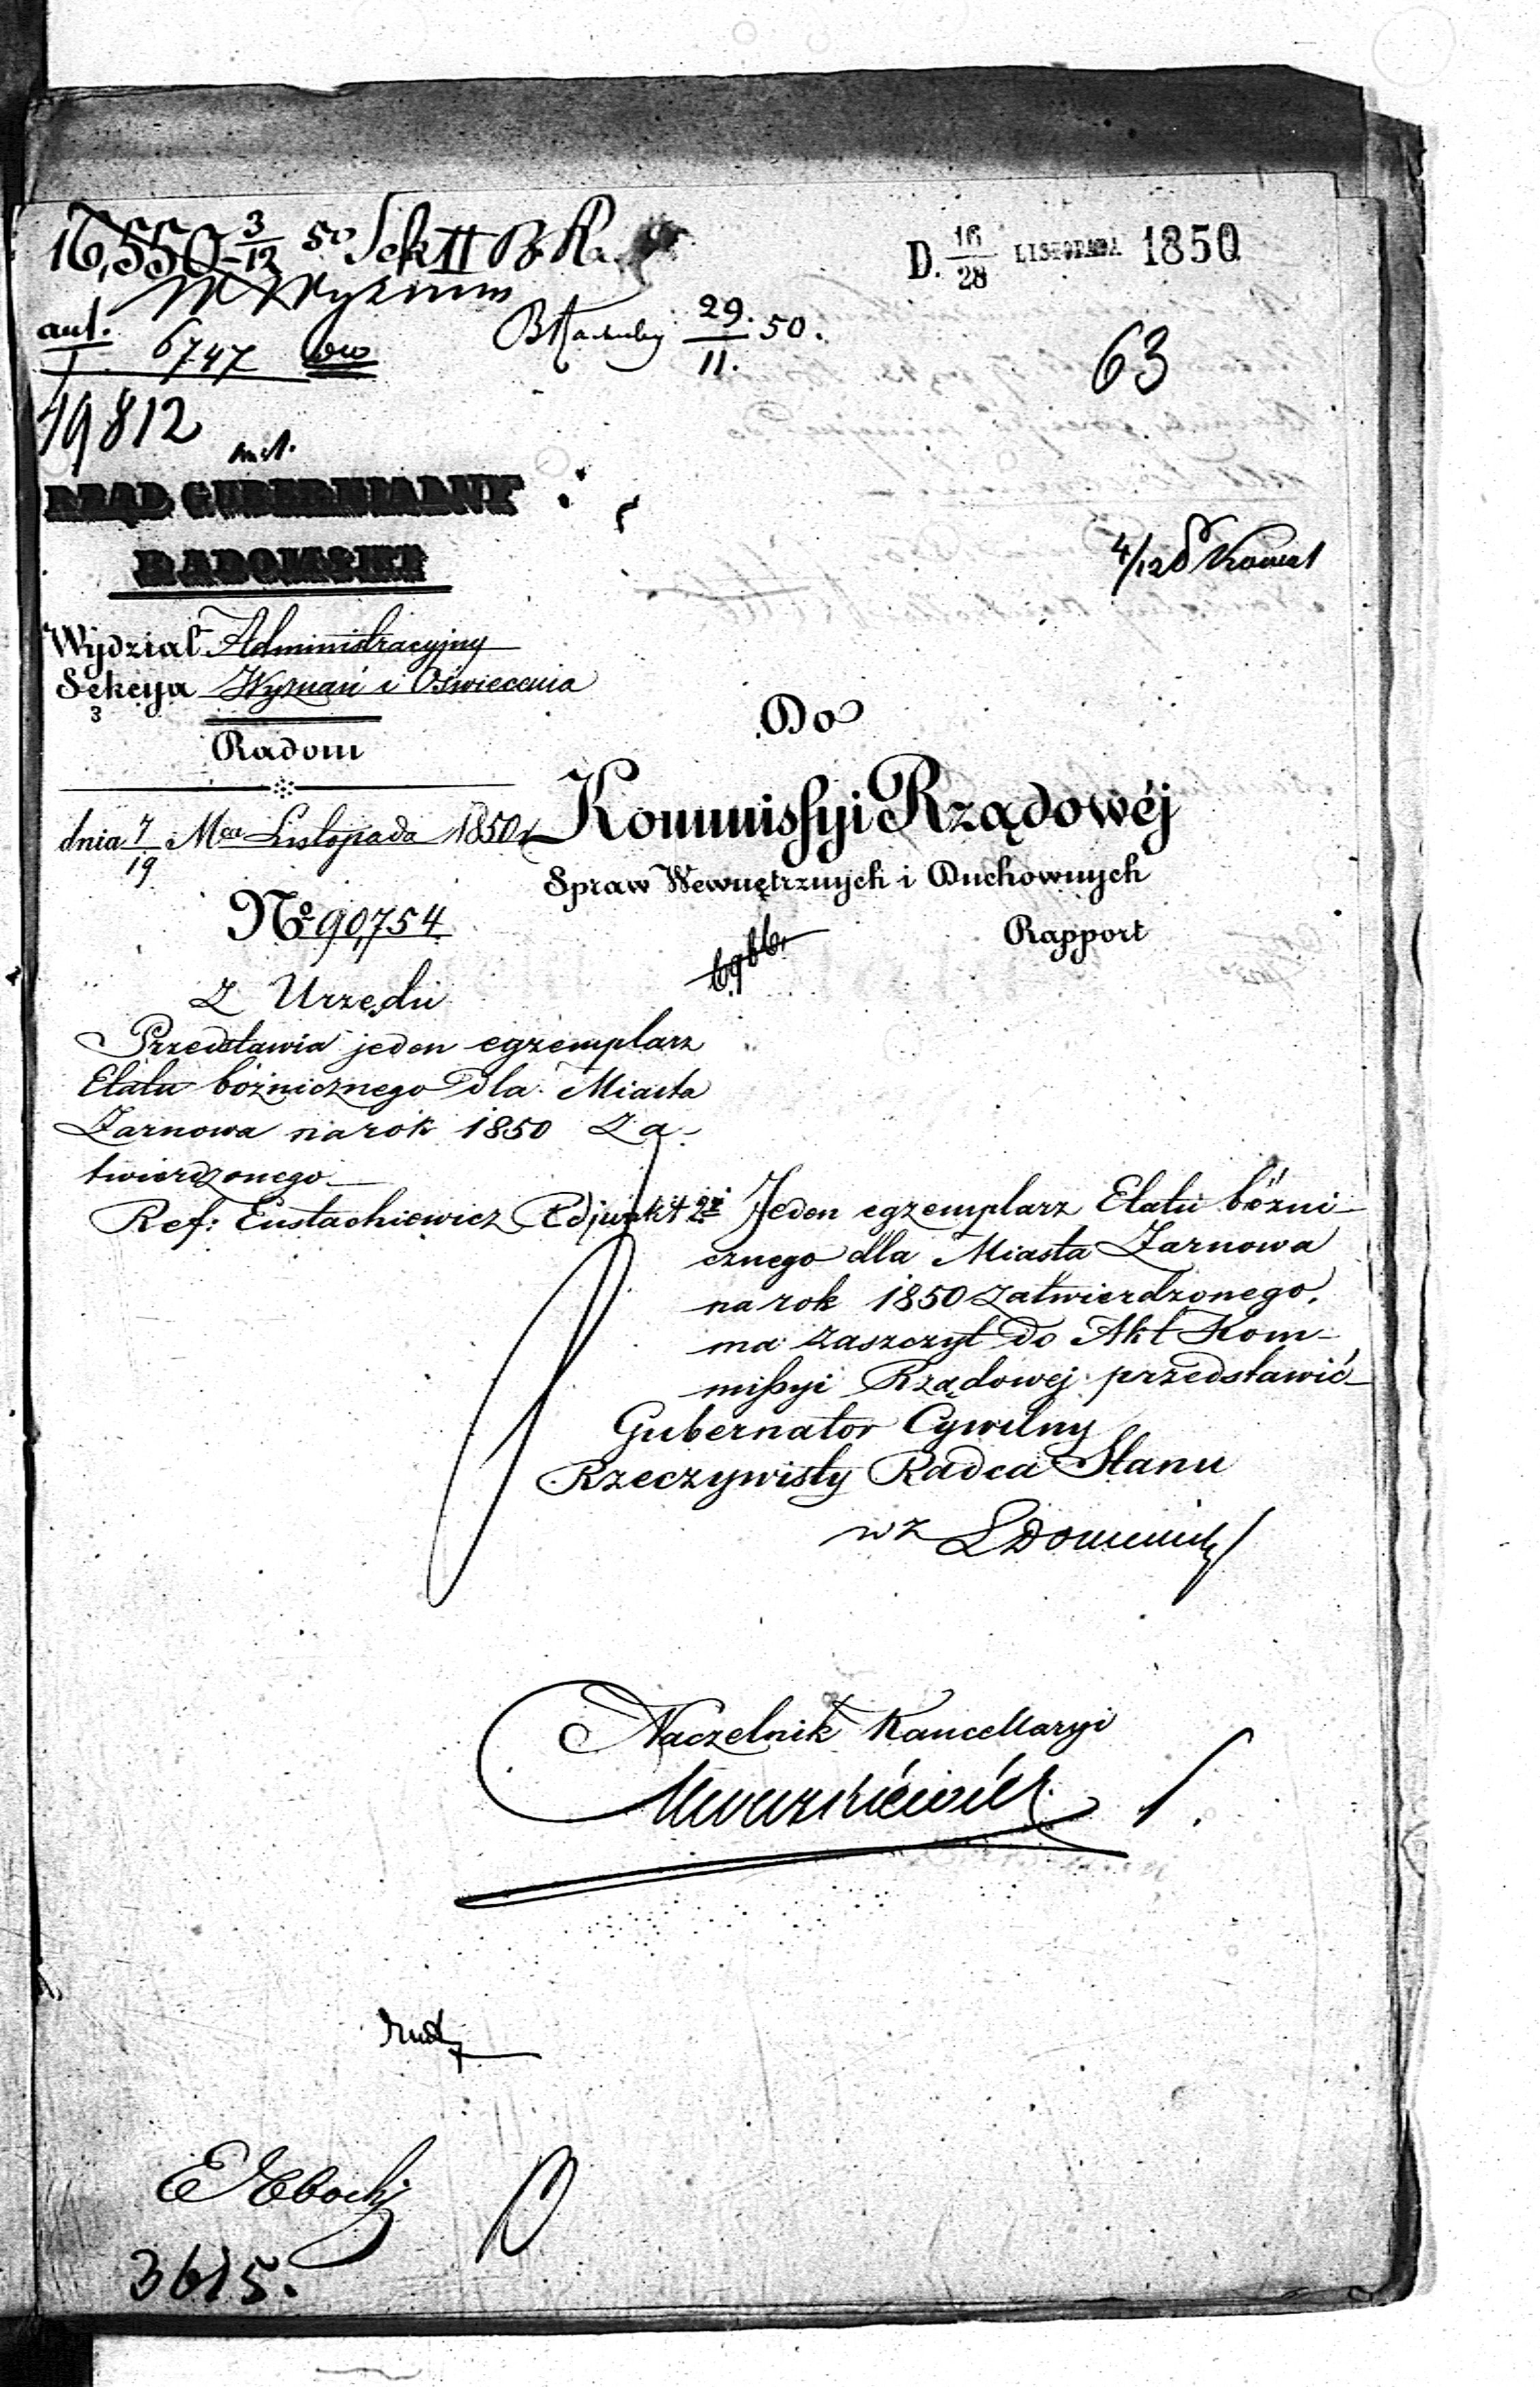 16,550 3/12 50 Sek II
D. 16/28 LISTOPADA 1850
ant. 6747
29./11. 50.
63
19812
RZĄD GUBERNIALNY
RADOMSKI
4/12
Wydział Administracyjny
Sekcya Wyznań i Oświecenia
3
Radom
dnia 7/19 Mca Listopada 1850 r
No 90,754
Do
Kommissyi Rządowéj
Spraw Wewnętrznych i Duchownych
Rapport
Z Urzędu
Przedstawia jeden egzemplarz
Etatu bóżnicznego dla Miasta
Żarnowa na rok 1850 za-
twierdzonego
Ref: Eustachiewicz Adjunkt
Jeden egzemplarz Etatu bóżni-
cznego dla Miasta Żarnowa
na rok 1850 zatwierdzonego,
ma zaszczyt do Akt Kom-
missyi Rządowej przedstawić
Gubernator Cywilny
Rzeczywisty Radca Stanu
w z
Naczelnik Kancellaryi
3615.